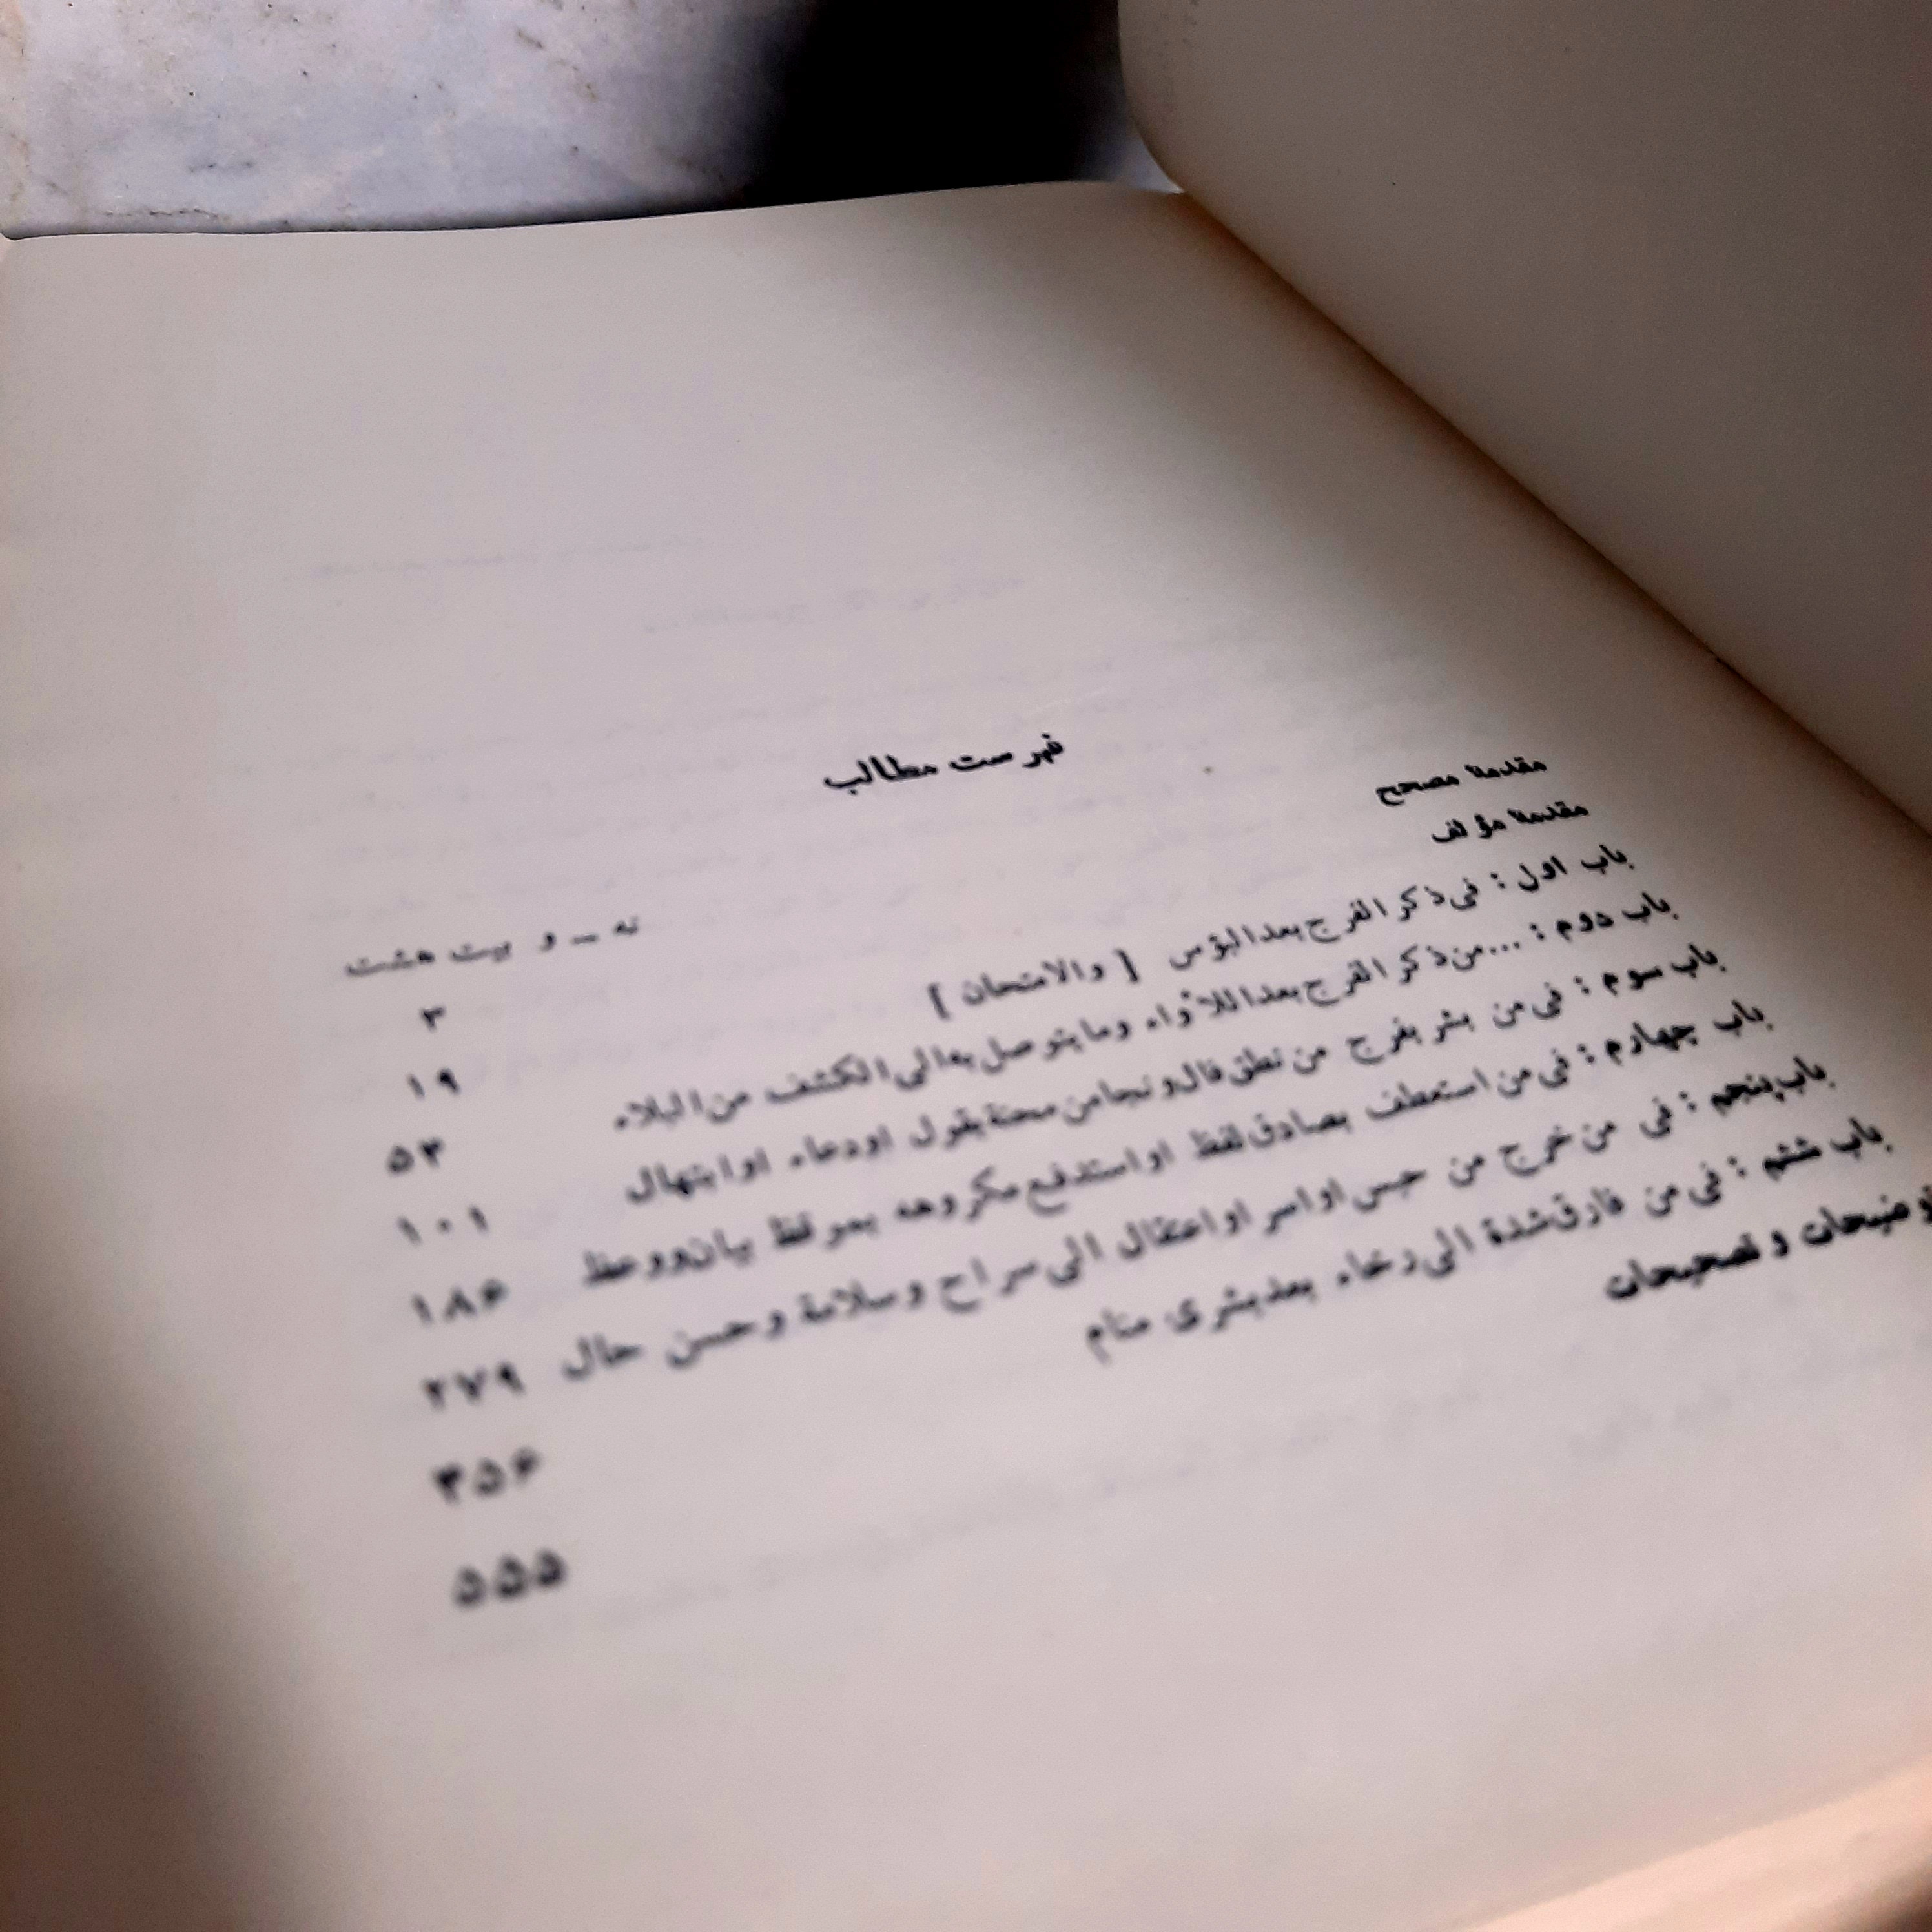 فهرست مطالب
مقدمهٔ مصحح نه ــ و بیت هشت
مقدمهٔ مؤلف ۳
باب اول : فی ذکر الفرج بعد البؤس [ والامتحان ] ۱۹
باب دوم : ...من ذکر الفرج بعد اللأواء وما یتوصل به الی الکشف من البلاء ۵۳
باب سوم : فی من بشر بفرج من نطق فال و نجا من محنة بقول او دعاء او ابتهال ۱۰۱
باب چهارم : فی من استعطف بصادق لفظ او استدفع مکروهه بموقظ بیان و وعظ ۱۸۶
باب پنجم : فی من خرج من حبس او اسر او اعتقال الی سراح وسلامة وحسن حال ۲۷۹
باب ششم : فی من فارق شدة الی رخاء بعد بشری منام ۳۵۶
توضیحات و تصحیحات ۵۵۵